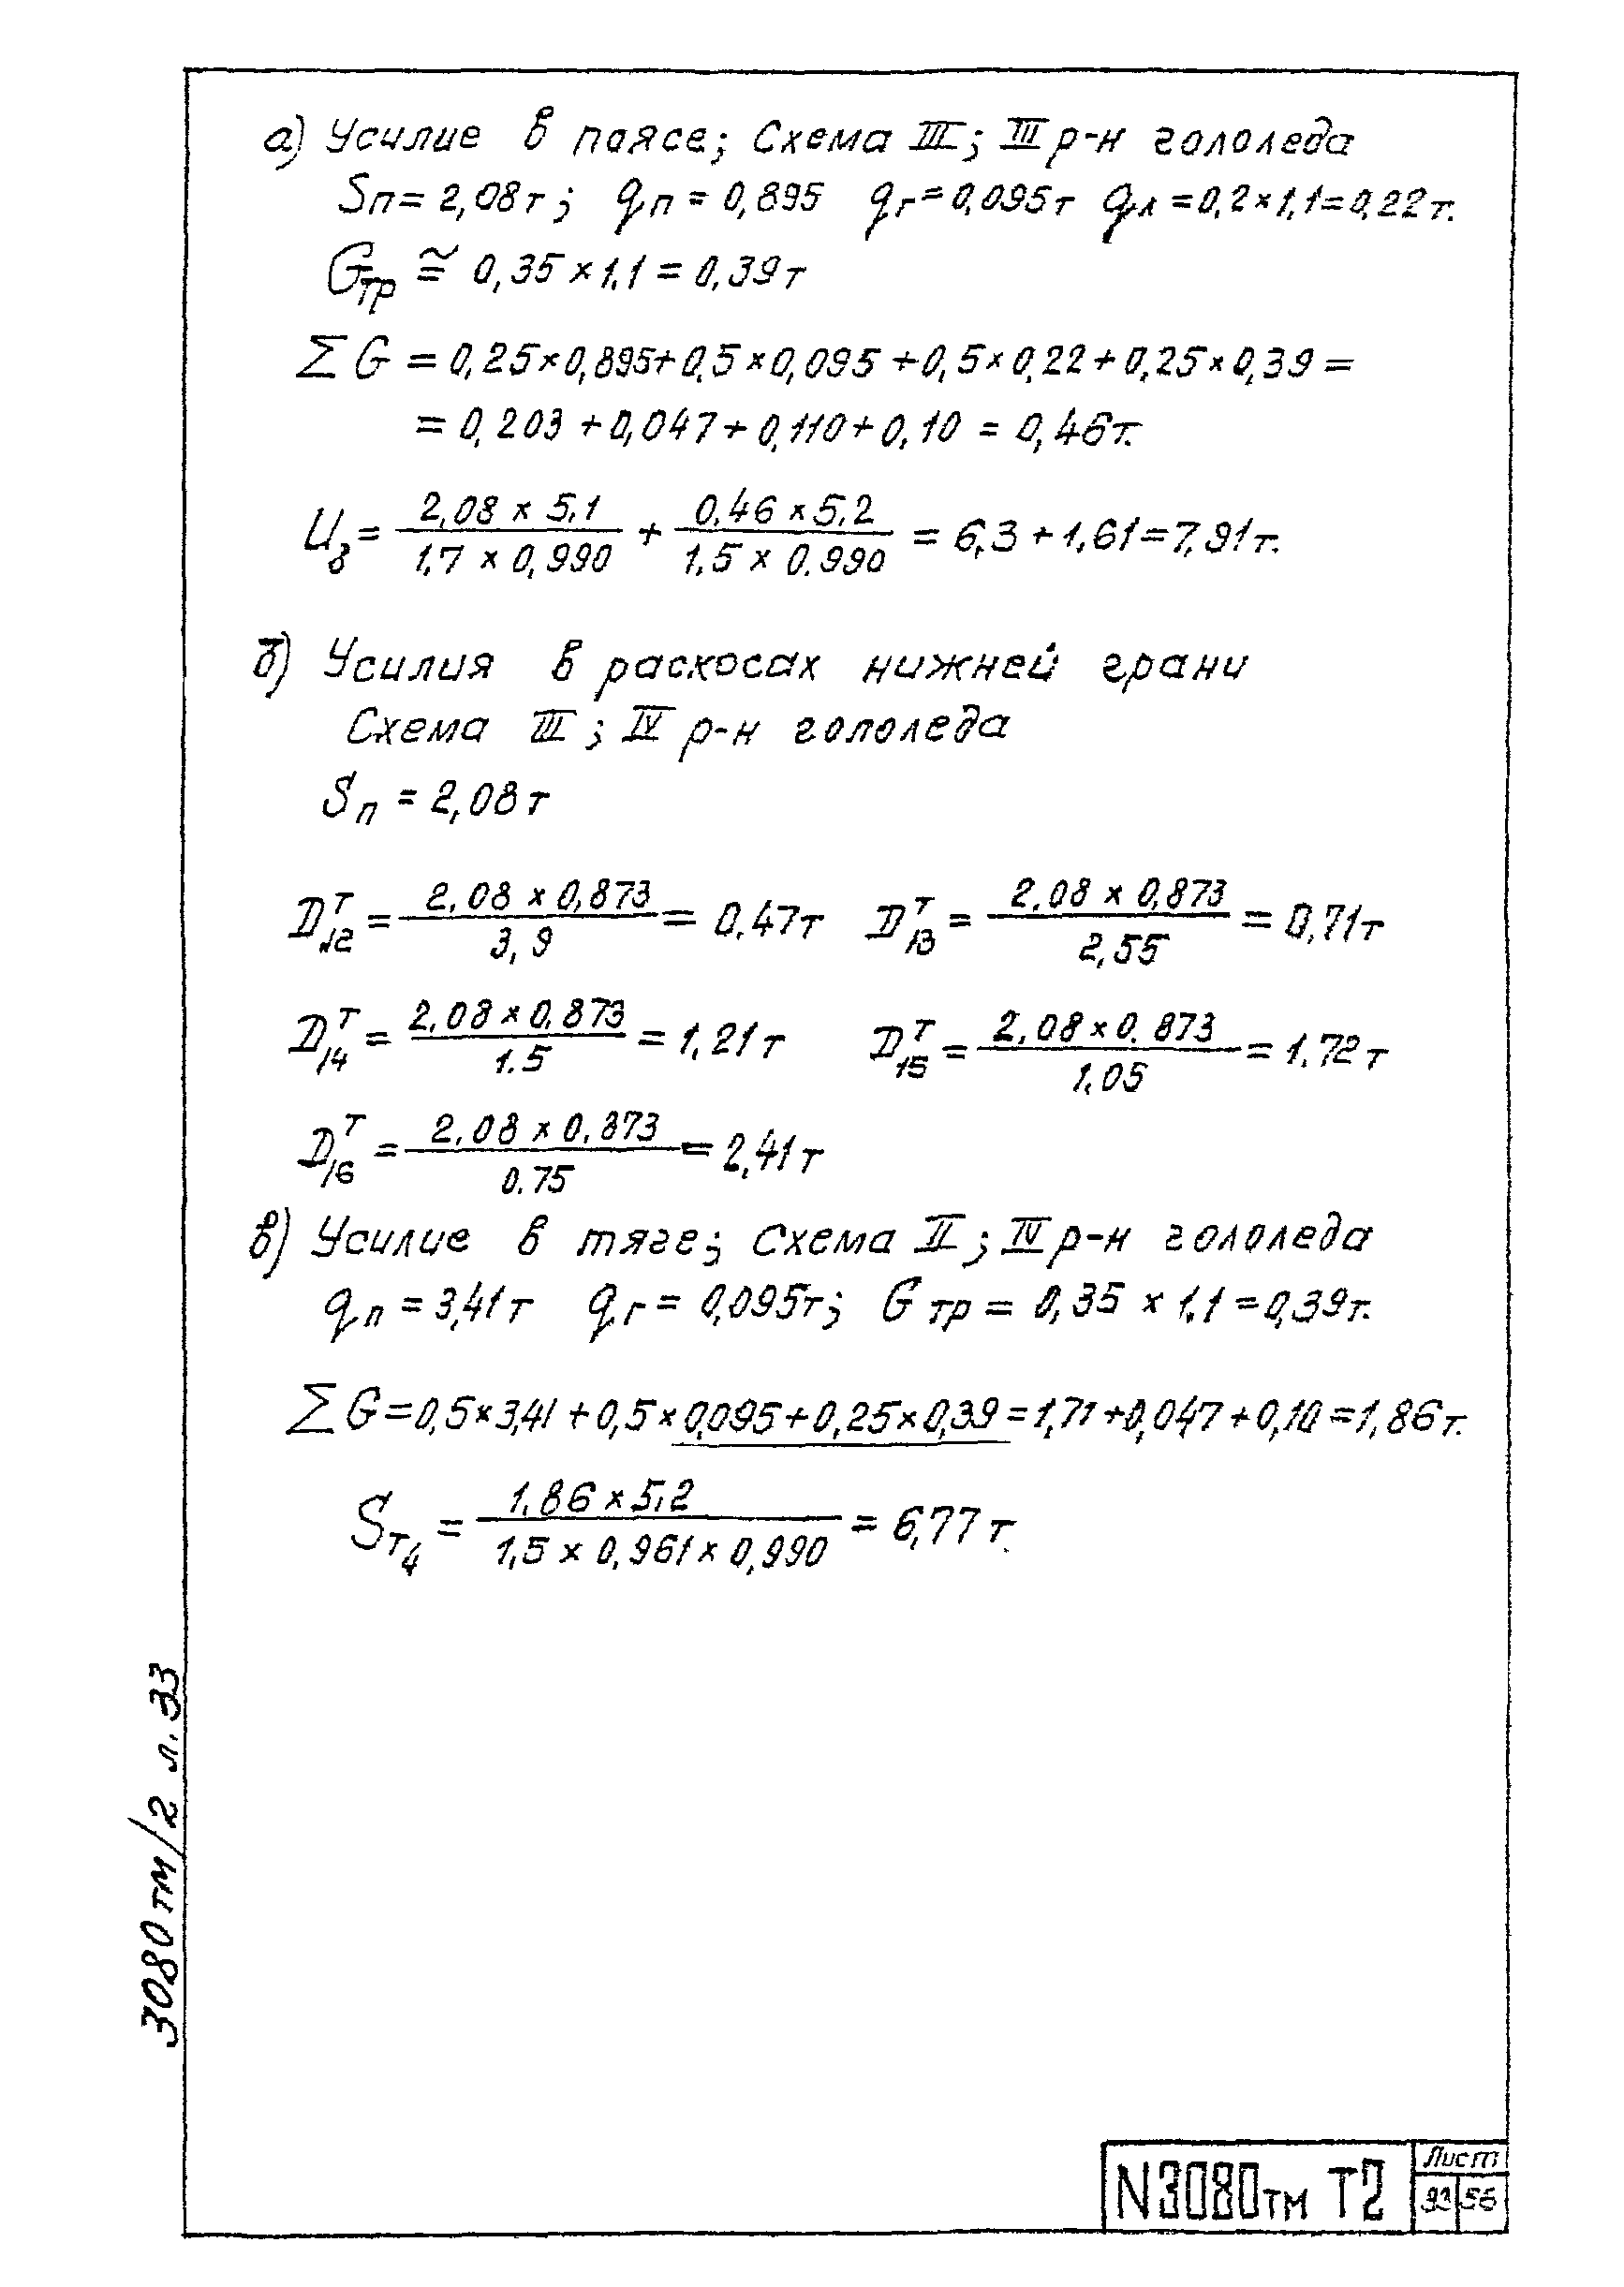 а) Усилие в поясе; Схема III; III р-н гололеда
Sп = 2,08т; qп = 0,895 qг = 0,095т qл = 0,2×1,1 = 0,22т.
Gтр ≅ 0,35×1,1 = 0,39т
ΣG = 0,25×0,895+0,5×0,095+0,5×0,22+0,25×0,39 =
= 0,203+0,047+0,110+0,10 = 0,46т.
U₈ = (2,08 × 5,1)/(1,7 × 0,990) + (0,46 × 5,2)/(1.5 × 0.990) = 6,3 + 1,61 = 7,91т.
б) Усилия в раскосах нижней грани
Схема III; IV р-н гололеда
Sп = 2,08т
D₁₂ᵀ = (2,08 × 0,873)/(3,9) = 0,47т D₁₃ᵀ = (2.08 × 0,873)/(2,55) = 0,71т
D₁₄ᵀ = (2,08 × 0.873)/(1.5) = 1,21т D₁₅ᵀ = (2,08×0.873)/(1,05) = 1.72т
D₁₆ᵀ = (2,08 × 0,873)/(0.75) = 2,41т
в) Усилие в тяге; Схема II; IV р-н гололеда
qп = 3,41т qг = 0,095т; Gтр = 0,35 × 1,1 = 0,39т.
ΣG = 0,5×3,41+0,5×0,095+0,25×0,39 = 1,71+0,047+0,10 = 1,86т.
Sт₄ = (1,86 × 5,2)/(1,5 × 0,961 × 0,990) = 6,77т.
3080тм/2 л.33
N3080тм Т2
Лист
33 56